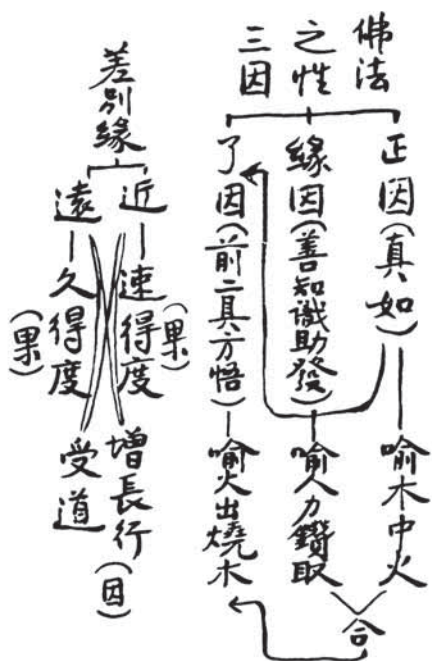 佛法
之性
三因
正因(真如)
喻木中火
緣因(善知識助發)
喻人力鑽取
合
了因(前二具方悟)
喻火出燒木
差別緣
近
速得度
(果)
增長行
(因)
遠
久得度
(果)
受道